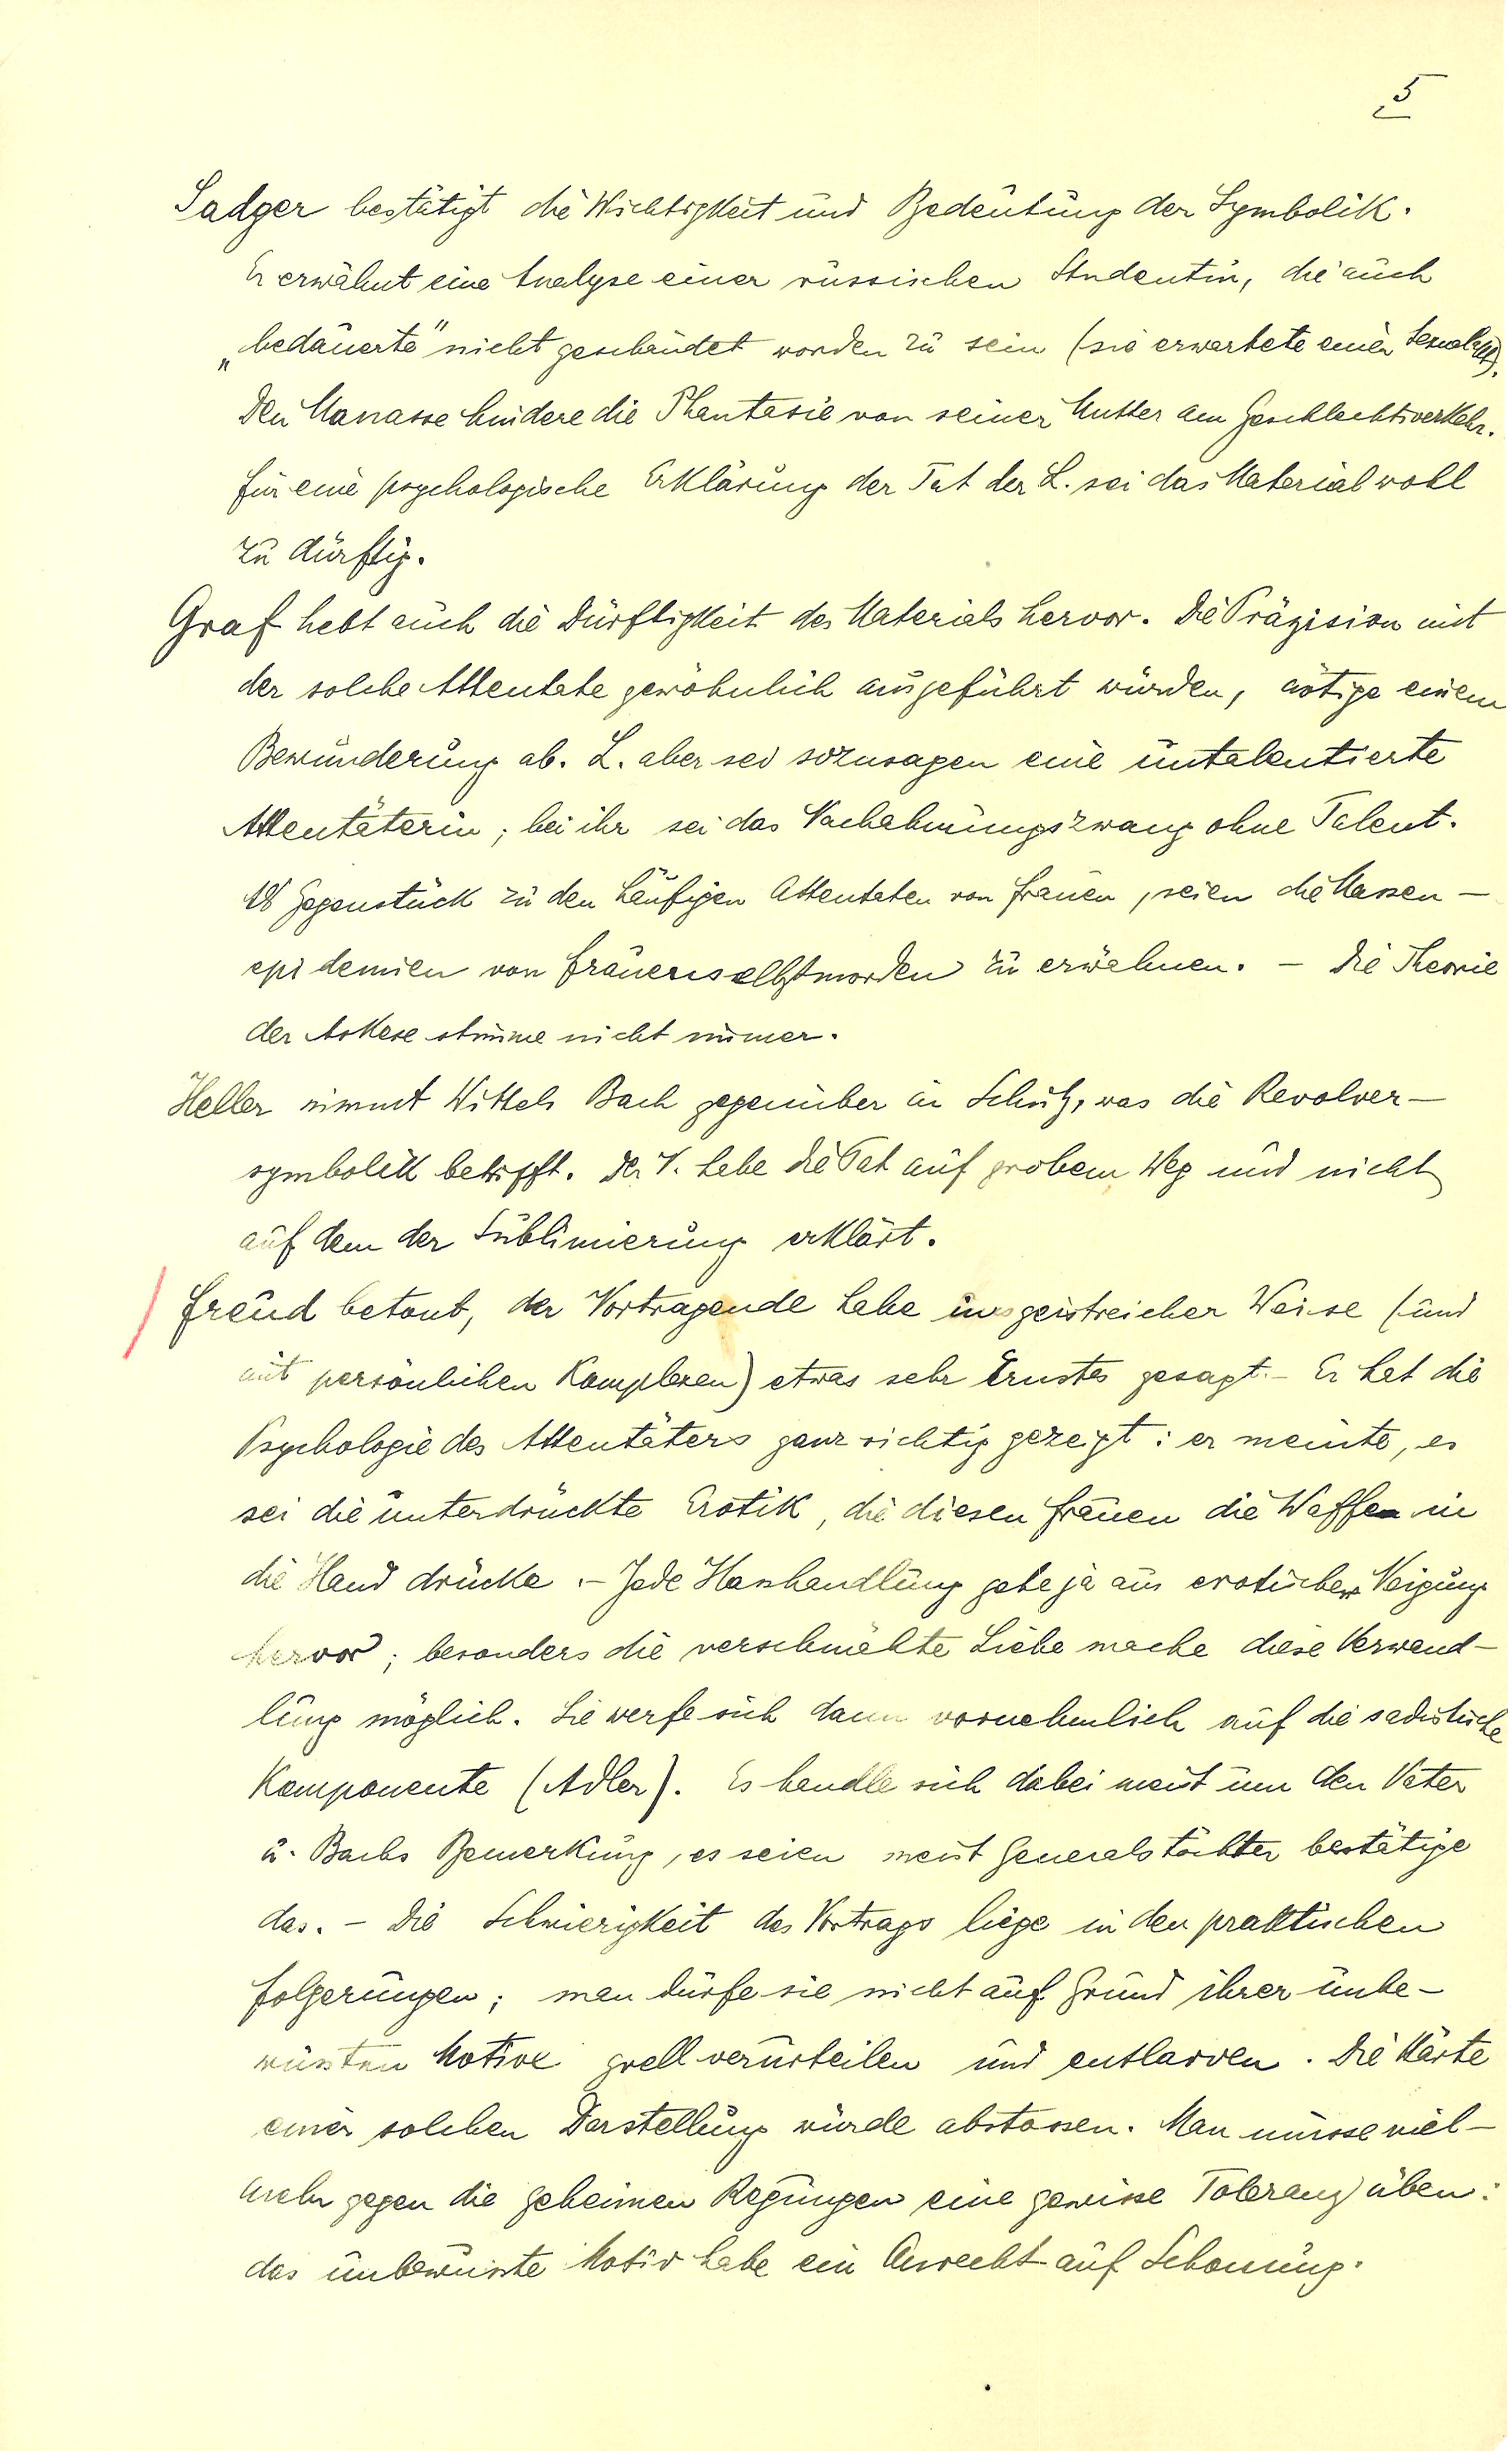 5
Sadger bestätigt die Wichtigkeit und Bedeutung der Symbolik.
Er erwähnt eine Analyse einer russischen Studentin, die auch
„bedauerte" nicht geschändet worden zu sein (sie erwartete einen Sexualakt).
Den Manasse hindere die Phantasie von seiner Mutter am Geschlechtsverkehr.
Für eine psychologische Erklärung der Tat der L. sei das Material wohl
zu dürftig.
Graf hebt auch die Dürftigkeit des Materials hervor. Die Präzision mit
der solche Attentate gewöhnlich ausgeführt würden, nötige einem
Bewunderung ab. L. aber sei sozusagen eine untalentierte
Attentäterin; bei ihr sei das Nachahmungszwang ohne Talent.
Als Gegenstück zu den häufigen Attentaten von Frauen, seien die Massen-
epidemien von Frauenselbstmorden zu erwähnen. – Die Theorie
der Askese stimme nicht immer.
Heller nimmt Wittels Bach gegenüber in Schutz, was die Revolver-
symbolik betrifft. Der V. habe die Tat auf grobem Weg und nicht
auf dem der Sublimierung erklärt.
Freud betont, der Vortragende habe in geistreicher Weise (und
mit persönlichen Komplexen) etwas sehr Ernstes gesagt. – Er hat die
Psychologie des Attentäters ganz richtig gezeigt: er meinte, es
sei die unterdrückte Erotik, die diesen Frauen die Waffen in
die Hand drücke. – Jede Hasshandlung gehe ja aus erotischer Neigung
hervor; besonders die verschmähte Liebe mache diese Verwand-
lung möglich. Sie werfe sich dann vornehmlich auf die sadistische
Komponente (Adler). Es handle sich dabei meist um den Vater
u. Bachs Bemerkung, es seien meist Generalstöchter bestätige
das. – Die Schwierigkeit des Vortrags liege in den praktischen
Folgerungen; man dürfe sie nicht auf Grund ihrer unbe-
wussten Motive grell verurteilen und entlarven. Die Härte
einer solchen Darstellung würde abstossen. Man müsse viel-
mehr gegen die geheimen Regungen eine gewisse Toleranz üben:
das unbewusste Motiv habe ein Anrecht auf Schonung.